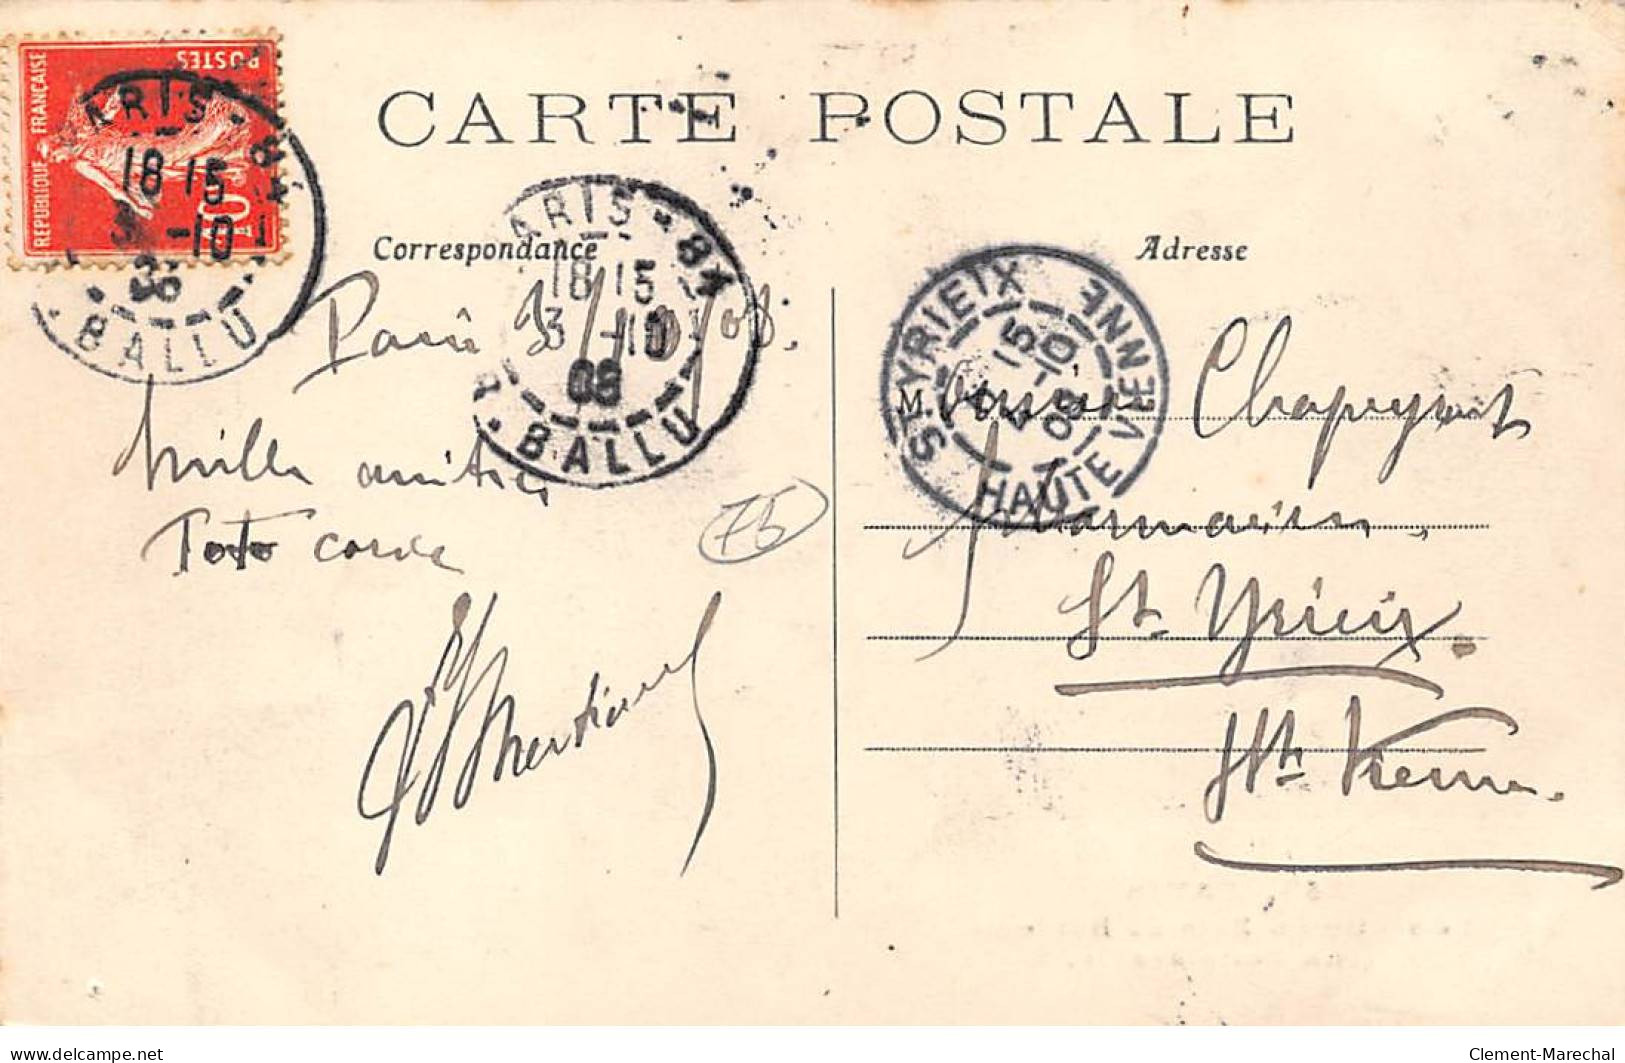 POSTES
REPUBLIQUE FRANÇAISE
10
PARIS - 84
18 15
3 -10
08
R. BALLU
CARTE POSTALE
Correspondance
PARIS - 84
18 15
3 -10
08
R. BALLU
Paris 3/10/08.
Mille amitiés
Toto
75
Adresse
ST YRIEIX
15
4 -10
08
HAUTE VIENNE
M.
Pharmacien
St Yrieix.
Hte Vienne.
delcampe.net
Clement-Marechal